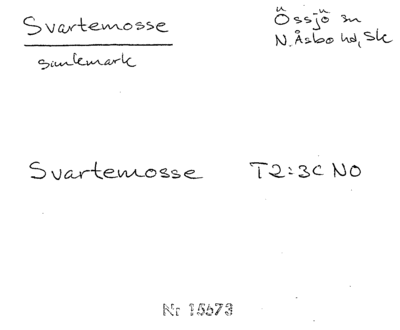 Svartemosse
sankmark
Össjö sn
N. Åsbo hd, Sk
Svartemosse T2:3C NO
Nr 15673